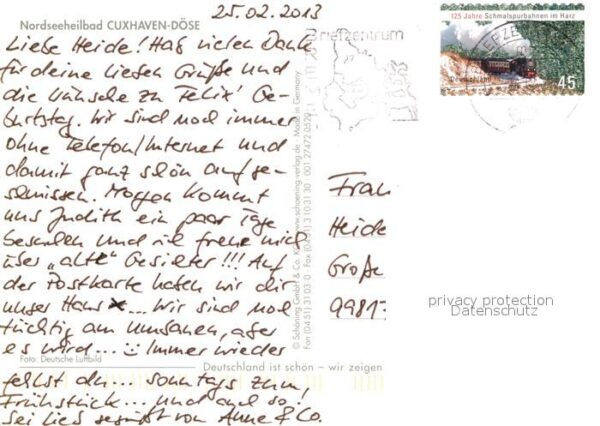 Nordseeheilbad CUXHAVEN-DÖSE
25.02.2013
Liebe Heide! Hab vielen Dank
für deine lieben Grüße und
die Wünsche zu Felix' Ge-
burtstag. Wir sind noch immer
ohne Telefon/Internet und
damit ganz schön aufge-
schmissen. Morgen kommt
uns Judith ein paar Tage
besuchen und ich freue mich
über „alte" Gesichter!!! Auf
der Postkarte haben wir dir
unser Haus x... Wir sind noch
tüchtig am Umbauen, aber
es wird... ☺ Immer wieder
fehlst du... sonntags zum
Frühstück... und auch so!
Sei lieb gegrüßt von Anne & Co.
Foto: Deutsche Luftbild
Deutschland ist schön – wir zeigen
© Schöning GmbH & Co. KG
www.schoening-verlag.de · Made in Germany
Fon (04 51) 31 03 0 · Fax (04 51) 3 10 31 30 · 001 27472 0529
Briefzentrum
125 Jahre Schmalspurbahnen im Harz
Deutschland
45
Frau
Heide
Große
9981
privacy protection
Datenschutz